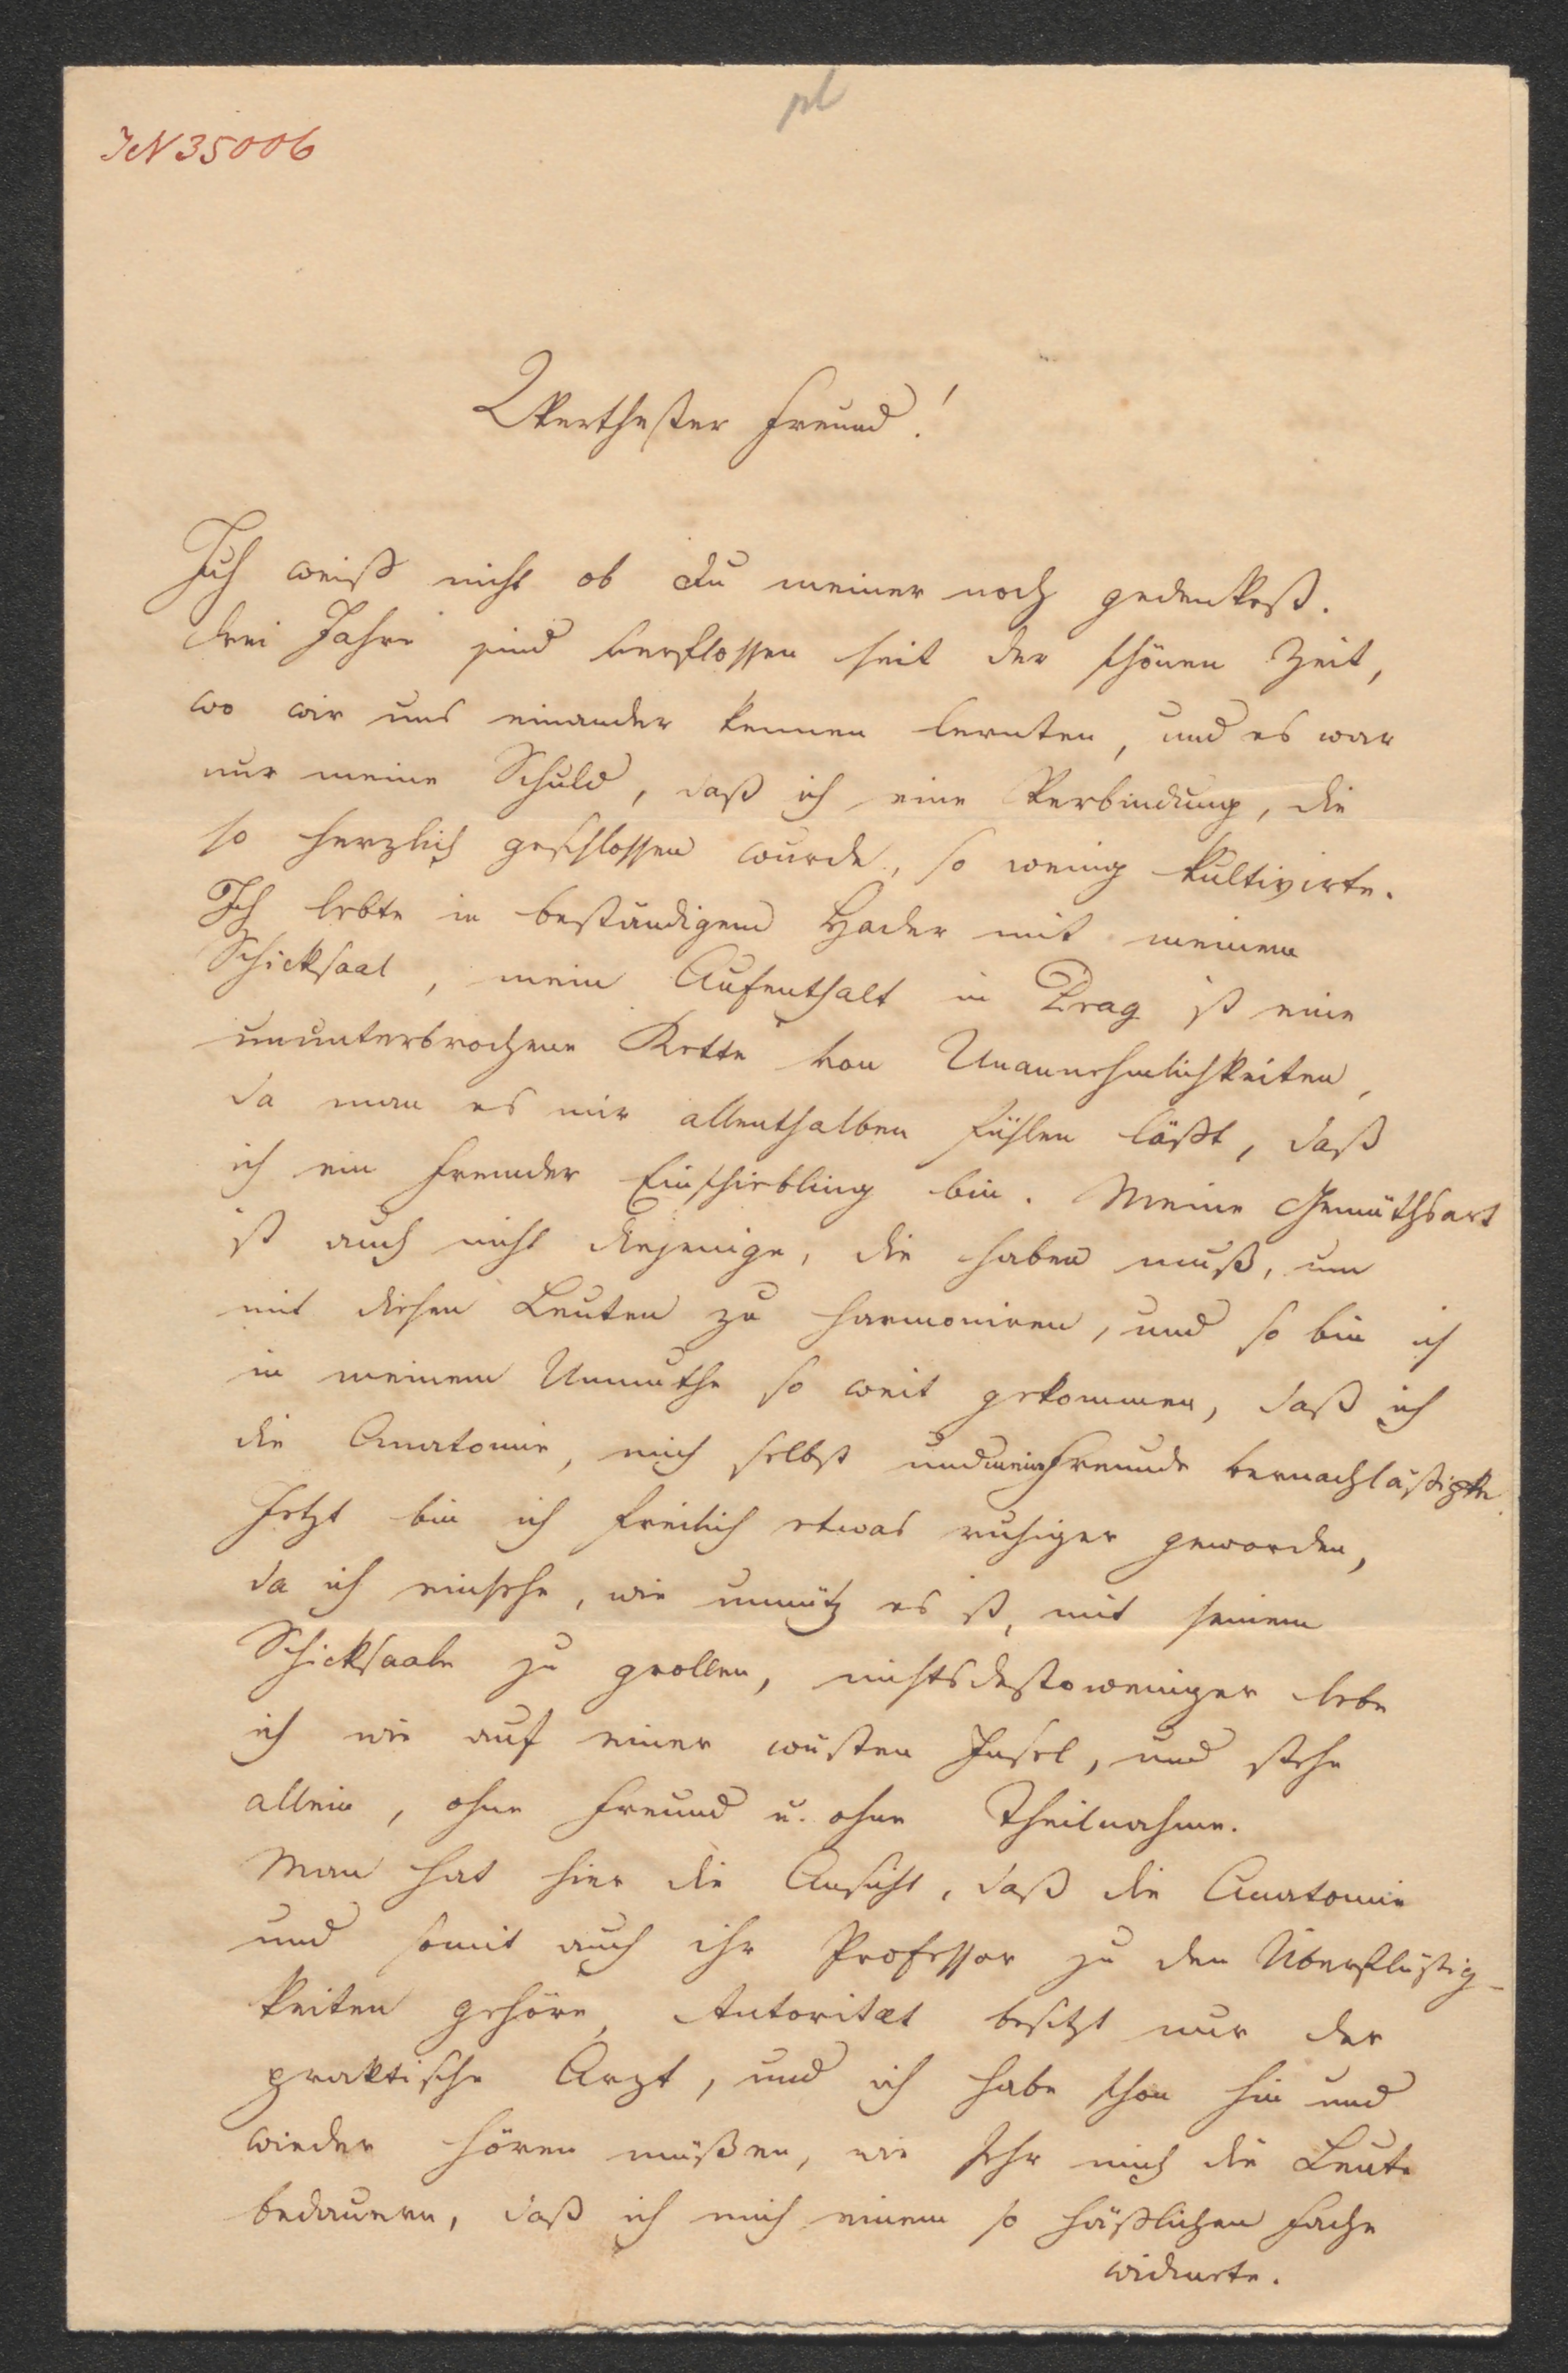 pl
IN 35006
Werthester Freund!
Ich weiß nicht ob Du meiner noch gedenkest.
Drei Jahre sind verflossen seit der schönen Zeit,
wo wir uns einander kennen lernten, und es war
nur meine Schuld, daß ich eine Verbindung, die
so herzlich geschlossen wurde, so wenig kultivirte.
Ich lebte in beständigem Hader mit meinem
Schicksaal, mein Aufenthalt in Prag ist eine
ununterbrochene Kette von Unannehmlichkeiten,
da man es mir allenthalben fühlen läßt, daß
ich ein fremder Einschiebling bin. Meine Gemüthsart
ist auch nicht diejenige, die haben muß, um
mit diesen Leuten zu harmoniren, und so bin ich
in meinem Unmuthe so weit gekommen, daß ich
die Anatomie, mich selbst und meine Freunde vernachläßigte.
Jetzt bin ich freilich etwas ruhiger geworden,
da ich einsehe, wie unnütz es ist, mit seinem
Schicksaale zu grollen, nichtsdestoweniger lebe
ich wie auf einer wüsten Insel, und stehe
allein, ohne Freund u. ohne Theilnahme.
Man hat hier die Ansicht, daß die Anatomie
und somit auch ihr Professor zu den Überflüßig-
keiten gehöre, Autoritæt besitzt nur der
praktische Arzt, und ich habe schon hin und
wieder hören müßen, wie sehr mich die Leute
bedauern, daß ich mich einem so häßlichen Fache
widmete.